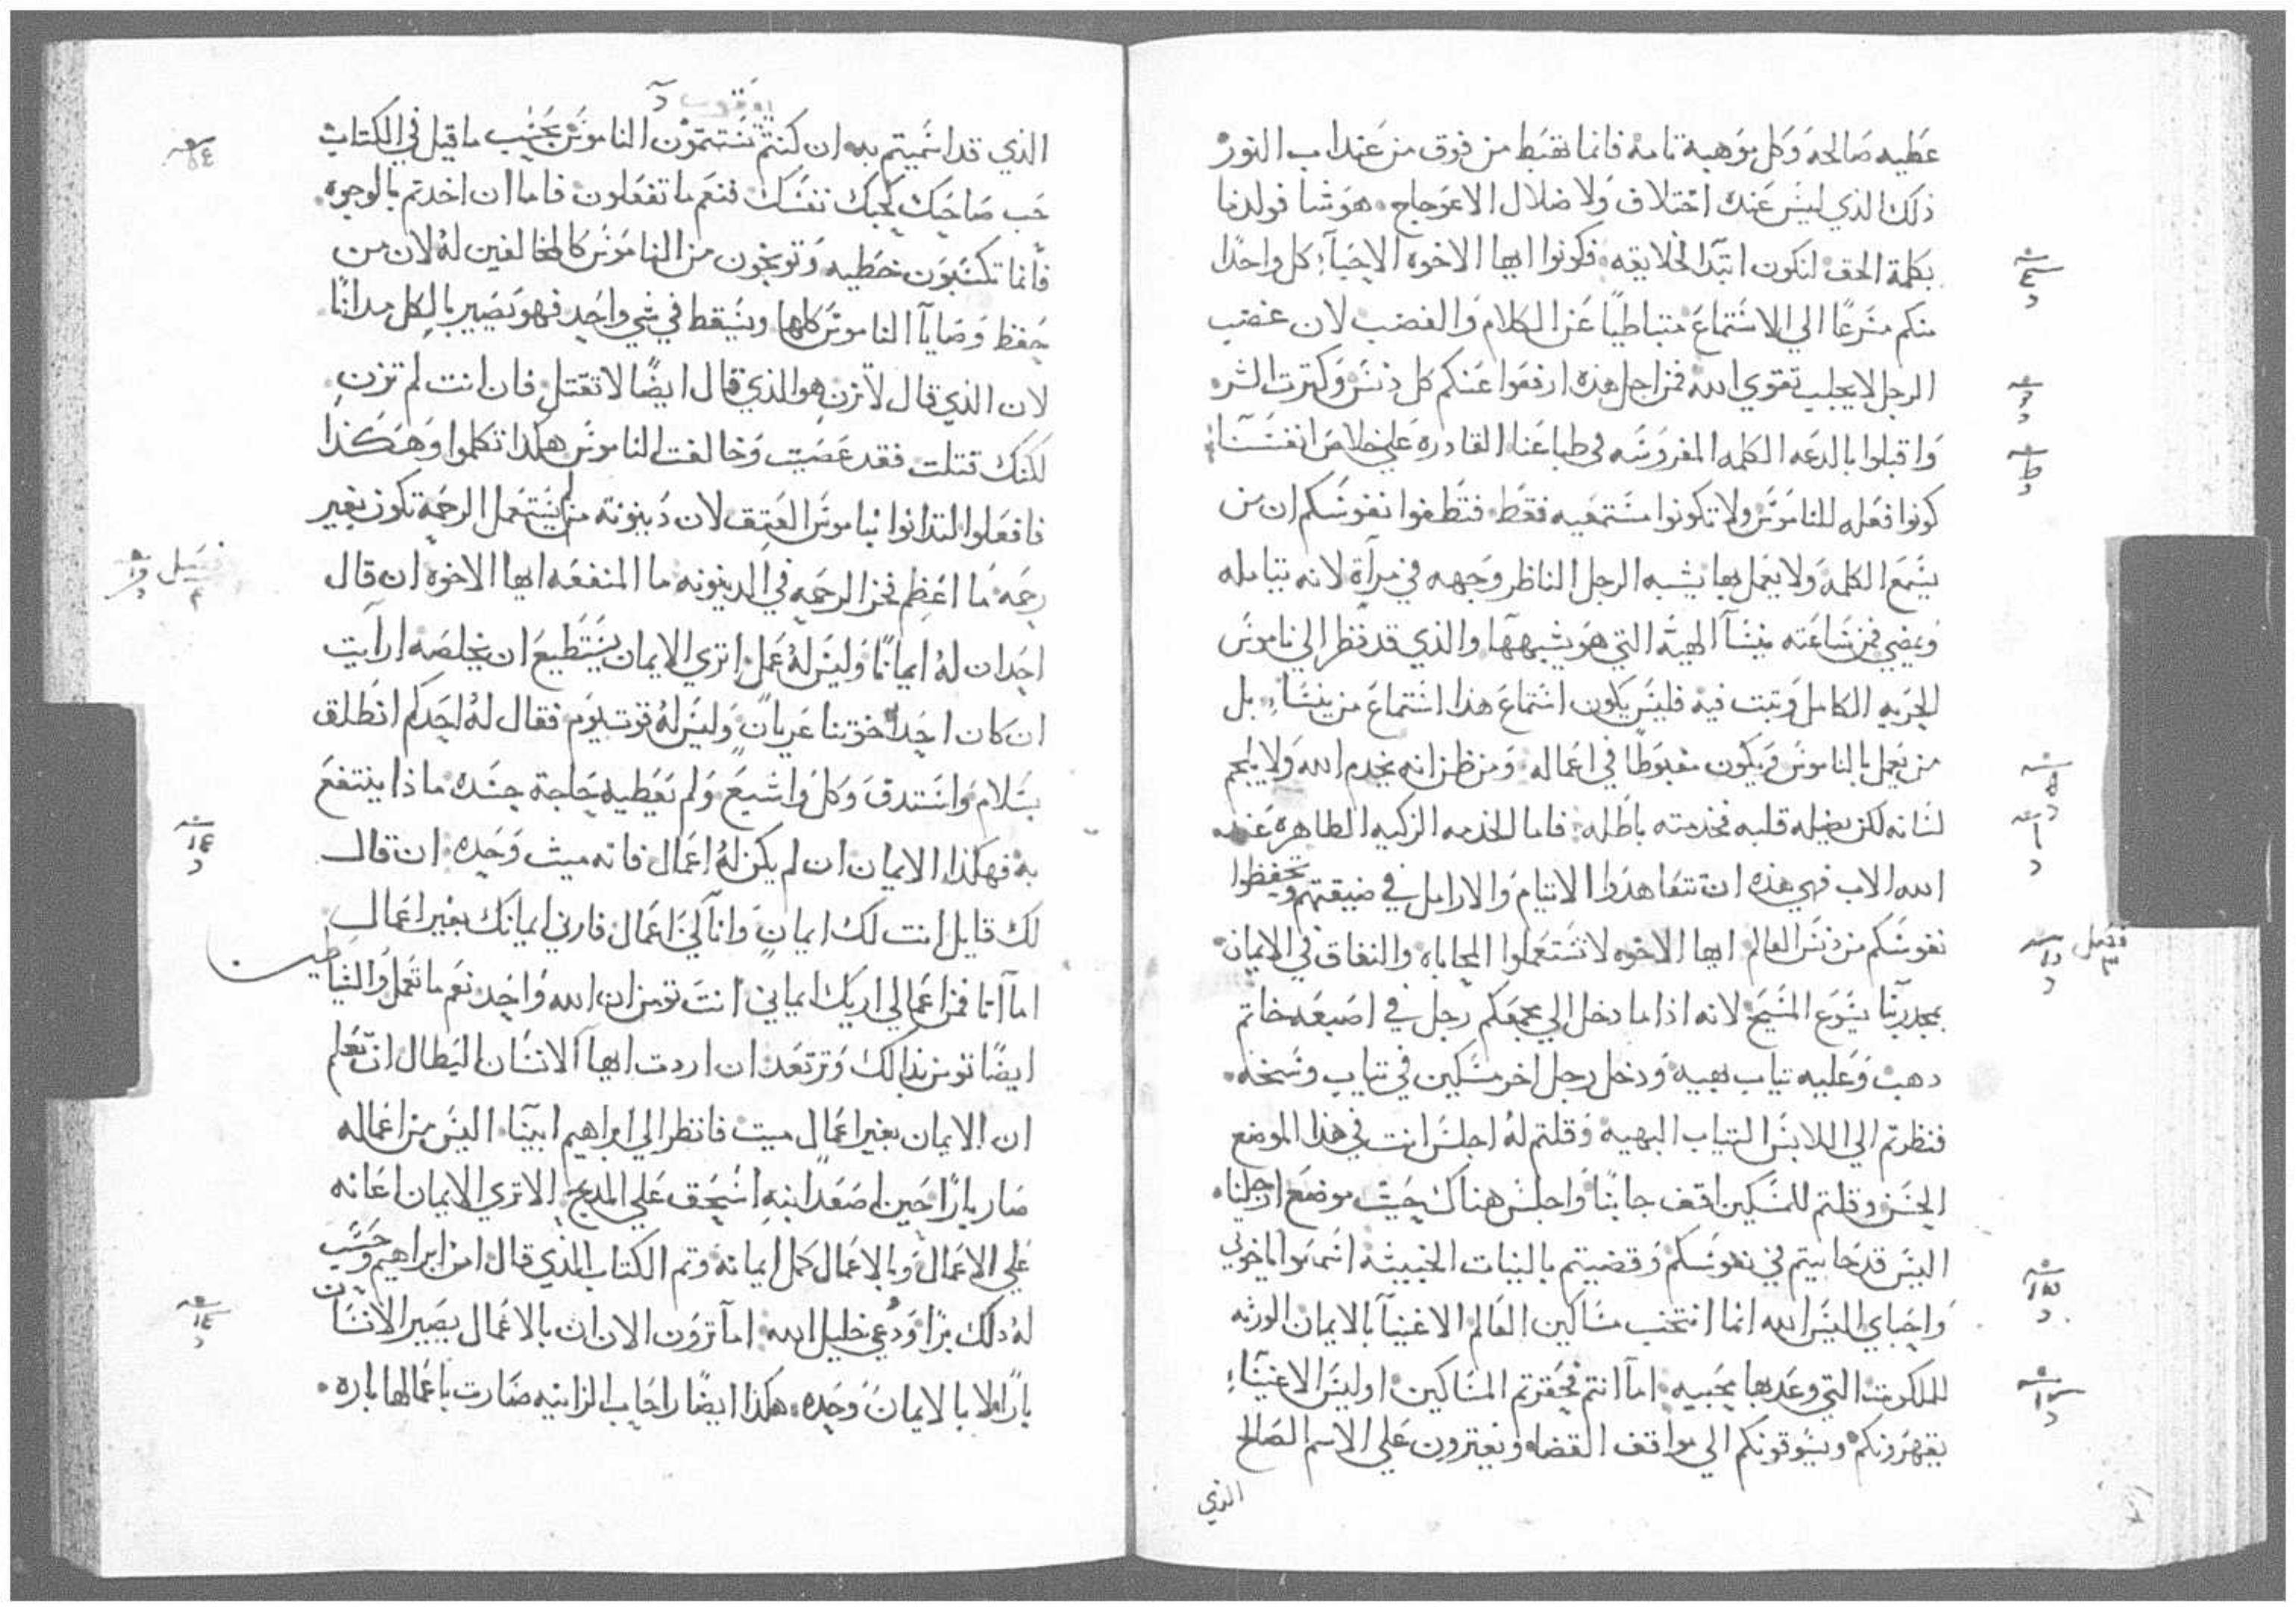 عطيه صالحه وكل موهبة تامه فانما تهبط من فوق من عند اب النور
ذلك الذي ليس عنده اختلاف ولا ضلال الاعوجاج. هو شا فولدنا
بكلمة الحق لنكون ابتدا لخلايقه فكونوا ايها الاخوه الاحباء كل واحدًا
منكم مسرعًا الي الاستماع متباطيًا عن الكلام والغضب لان غضب
الرجل لا يجلب تقوي الله فمن اجل هذه ارفعوا عنكم كل دنس وكترت الشر
واقبلوا بالدعه الكلمه المغروسه في طباعنا القادره علي خلاص انفسنا
كونوا فعله للناموس ولا تكونوا مستمعيه فقط فتطغوا نفوسكم ان من
يسمع الكلمه ولا يعمل بها يشبه الرجل الناظر وجهه في مرآة لانه يتامله
ويمضي فمن ساعته ينسا الهيئه التي هو يشبهها والذي قد نظر الي ناموس
الحريه الكامل وتبت فيه فليس يكون استماع هذا استماع من ينسا بل
من يعمل بالناموس ويكون مغبوطًا في اعماله ومن ظن انه يخدم الله ولا يلجم
لسانه لكن يضله قلبه فخدمته باطله فاما الخدمه الزكيه الطاهره عند
الله الاب فهي هذه ان تتعاهدوا الايتام والارامل في ضيقتهم وتحفظوا
نفوسكم من دنس العالم ايها الاخوه لا تستعملوا المحاباه والنفاق في الايمان
فصل ٣
بمجد ربنا يسوع المسيح لانه اذا ما دخل الي مجمعكم رجل في اصبعه خاتم
دهب وعليه تياب بهيه ودخل رجل اخر مسكين في تياب وسخه.
فنظرتم الي اللابس التياب البهيه وقلتم له اجلس انت في هذا الموضع
الحسن وقلتم للمسكين اقف جانبًا واجلس هناك حيث موضع ارجلنا
اليس قد حابيتم في نفوسكم وقضيتم بالنيات الخبيثه استمعوا ياخوتي
واحباي اليس الله انما انتخب مساكين العالم الاغنيا بالايمان الورثه
للملكوت التي وعد بها محبيه اما انتم فحقرتم المساكين اوليس الاغنياء
يقهرونكم ويسوقونكم الي مواقف القضاه ويفترون علي الاسم الصالح
الذي
يعقوب
الذي قد اسميتم به ان كنتم تستتمون الناموس بحسب ما قيل في الكتاب
حب صاحبك كحبك نفسك فنعم ما تفعلون فاما ان اخدتم بالوجوه
فانما تكسبون خطيه وتوبخون من الناموس كالمخالفين له لان من
حفظ وصايا الناموس كلها ويسقط في شي واحد فهو يصير بالكل مدانًا
لان الذي قال لا تزن هو الذي قال ايضًا لا تقتل فان انت لم تزن
لكنك قتلت فقد عصيت وخالفت الناموس هكذا تكلموا وهكذا
فافعلوا لتدانوا بناموس العتق لان دينونه من لم يستعمل الرحمة تكون بغير
رحمه ما اعظم فخر الرحمه في الدينونه ما المنفعه ايها الاخوه ان قال
احد ان له ايمانًا وليس له عمل اتري الايمان يستطيع ان يخلصه ارآيت
ان كان احد اخوتنا عريان وليس له قوت يوم فقال له احدكم انطلق
بسلام واستدق وكل واشبع ولم تعطيه حاجة جسده ماذا ينتفع
به فهكذا الايمان ان لم يكن له اعمال فانه ميت وحده ان قال
لك قايل انت لك ايمان وانا لي اعمال فارني ايمانك بغير اعمال
اما انا فمن اعمالي اريك ايماني انت تومن ان الله واحد نعم ما تعمل والشياطين
ايضًا تومن بذلك وترتعد ان اردت ايها الانسان البطال ان تعلم
ان الايمان بغير اعمال ميت فانظر الي ابراهيم ابينا اليس من اعماله
صار بارًا حين اصعد ابنه اسحق علي المدبح الا تري الايمان اعانه
علي الاعمال وبالاعمال كمل ايمانه وتم الكتاب الذي قال امن ابراهيم وحسب
له ذلك برًا ودعي خليل الله اما ترون الان ان بالاعمال يصير الانسان
بارًا ولا بالايمان وحده. هكذا ايضًا راحاب الزانيه صارت باعمالها باره.